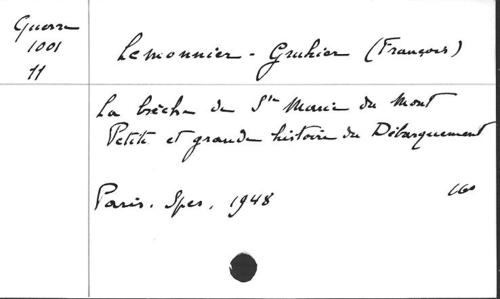 Guerre
1001
11
Lemonnier - Gruhier (François)
La brèche de Ste Marie du Mont
Petite et grande histoire du Débarquement
Paris. Spes, 1948
160